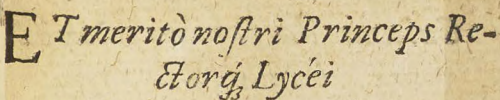 ET meritò noſtri Princeps Re-
ctorq́ꝫ Lycéi